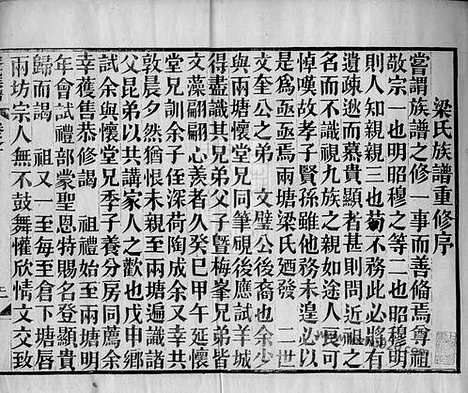 梁氏族譜重修序
嘗謂族譜之修一事而善備焉尊祖
敬宗一也明昭穆之等二也昭穆明
則人知親親三也茍不務此必將有
遺疎逖而慕貴顯甚則問近祖之
名而不識視九族之親如途人良可
悼嘆故孝子賢孫雖他務未遑必以
此為亟亟焉兩塘梁氏廼發 二世
文奎公之弟 文璧公裔也余少
與兩塘懷堂兄同筆硯曾以試羊城
得盡識其兄弟父子暨梅峯兄弟皆
文藻翩翩心善者久癸巳甲午延懷
堂兄訓余子姪深荷陶成余又幸共
敦晨夕猶之修未親於兩塘遍識諸
父昆弟以共講家人之歡也戊申鄉
試余與懷堂兄季子養分房同薦余
幸獲售恭修謁 祖禮始至兩塘明
年會試禮部蒙聖恩特賜名登顯貴
歸而謁 祖又一至每至倉下塘唇
兩坊宗人無不鼓舞懽欣情文交致